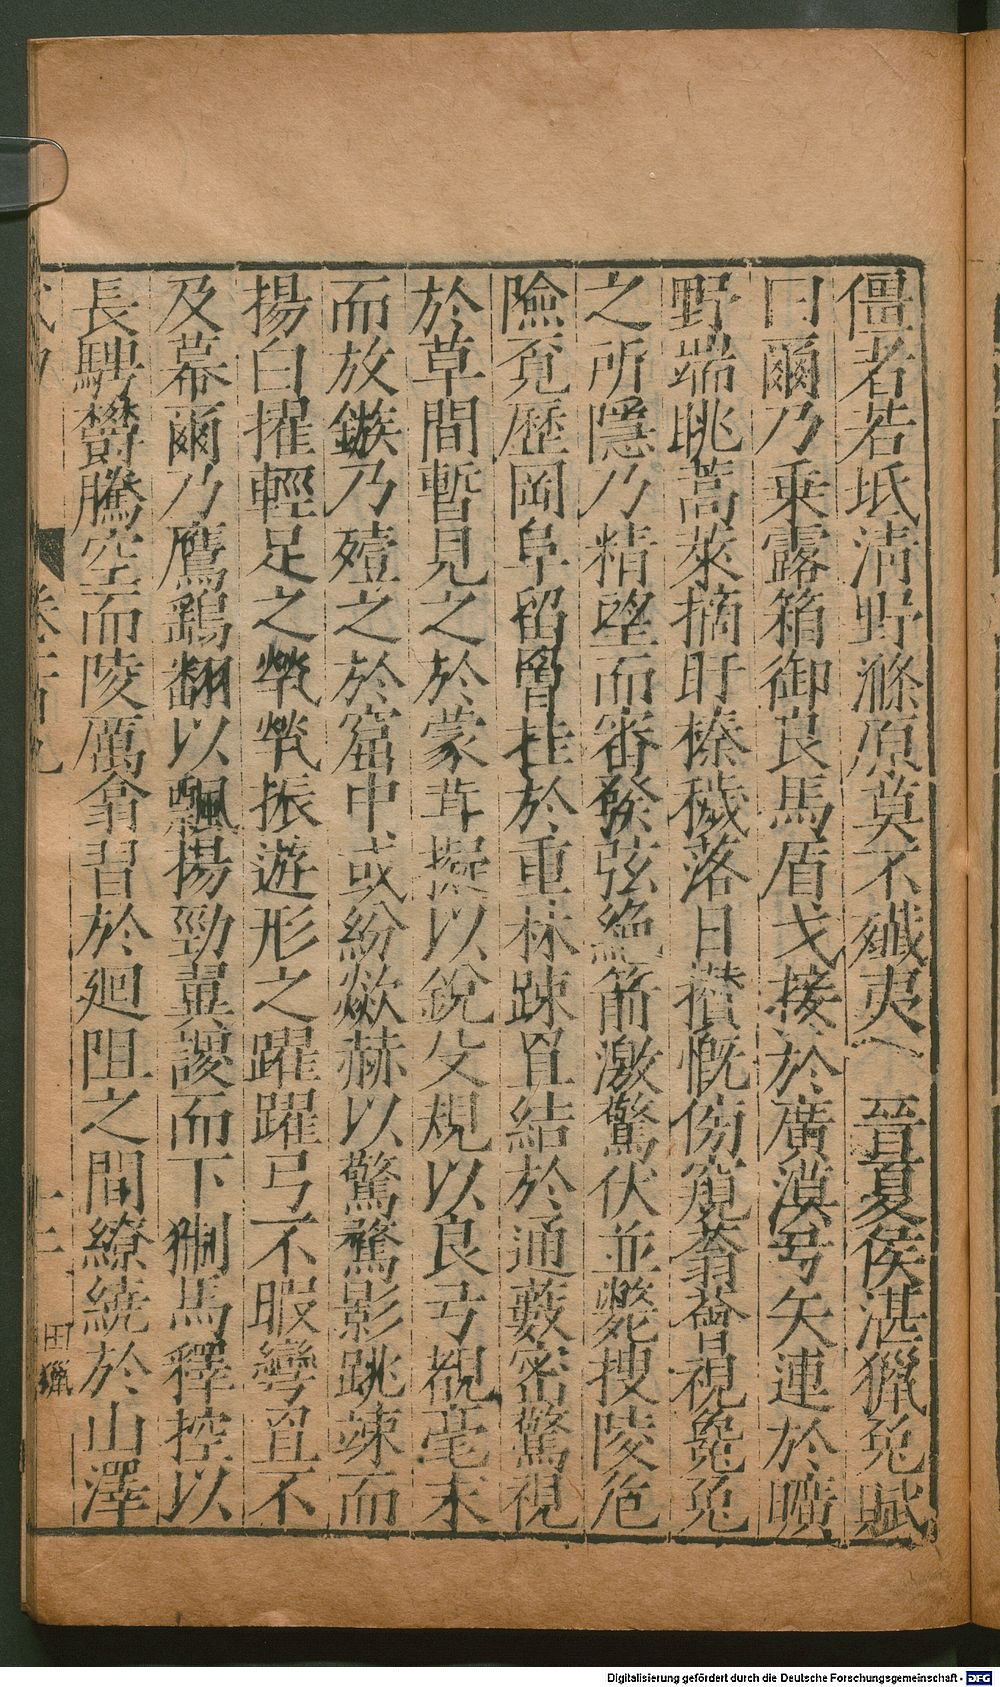 僵者若坻淸野滌原莫不殲夷〇晉夏侯湛獵兎賦
曰爾乃乘露箱御良馬盾戈接於廣漠弓矢連於曠
野端眺蒿萊摘盱榛穢落目攢慨傷窺蓊薈視䨲兎
之所隱乃精望而審發弦絕箭激驚伏並斃搜陵危
險覓歷岡阜留罾挂於重林踈罝結於通藪密驚視
於草間暫見之於蒙茸擬以銳攵規以良弓覩毫末
而放鏃乃殪之於窟中或紛歘赫以驚驁影跳竦而
揚白擢輕足之煢煢振遊形之躍躍弓不暇彎罝不
及幕爾乃鷹鷂翻以飄揚勁翼謖而下獮馬釋控以
長騁欝騰空而陵厲翕習於廻阻之間繚繞於山澤
田獵
Digitalisierung gefördert durch die Deutsche Forschungsgemeinschaft - DFG